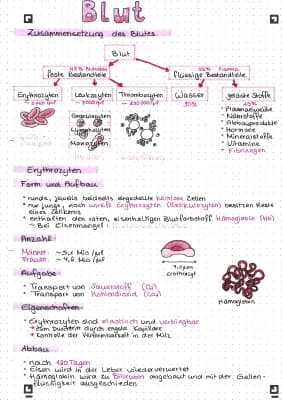 Blut
Zusammensetzung des Blutes
Blut
45% Blutzellen
feste Bestandteile
55% Plasma
flüssige Bestandteile
Erythrozyten
Leukozyten
Thrombozyten
Wasser
gelöste Stoffe
90%
10%
Granulozyten
Lymphozyten
Monozyten
• Plasmaeiweiße
• Nährstoffe
• Abbauprodukte
• Hormone
• Mineralstoffe
• Vitamine
• Fibrinogen
Erythrozyten
Form und Aufbau
• runde, jeweils beidseitig eingedellte kernlose Zellen
• nur junge, noch unreife Erythrozyten (Retikulozyten) besitzen Reste eines Zellkerns
• enthalten den roten, eisenhaltigen Blutfarbstoff Hämoglobin (Hb)
→ Bei Eisenmangel:
Anzahl
Männer: ~5,1 Mio/µl
Frauen: ~4,6 Mio/µl
Aufgabe
• Transport von Sauerstoff (O₂)
• Transport von Kohlendioxid (CO₂)
Hämoglobin
Eigenschaften
• Erythrozyten sind elastisch und verbiegbar
→ zum Durchtritt durch engste Kapillare
→ Kontrolle der Verformbarkeit in der Milz
Abbau
• nach 120 Tagen
• Eisen wird in der Leber wiederverwertet
• Hämoglobin wird zu Bilirubin abgebaut und mit der Gallenflüssigkeit ausgeschieden